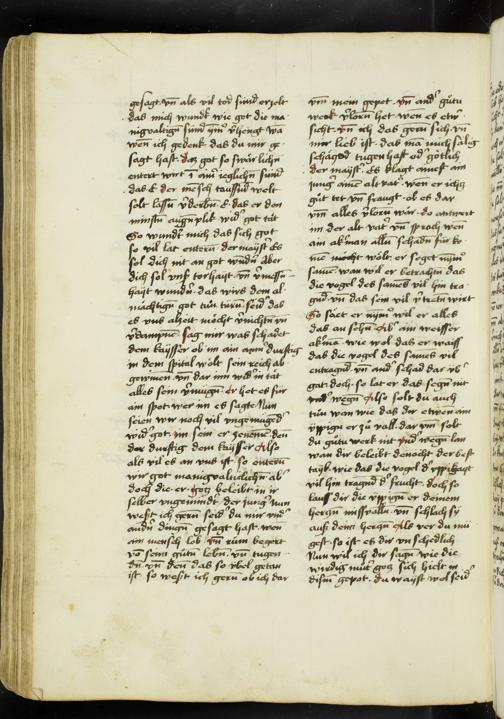 gesagt. vn̄ als vil tod sund erzelt
das mich wundt wie got die ma-
nigualtign̄ sund
wen ich gedenk das du mir ge-
sagt hast. daz got so swar lichn̄
entert wirt ī ain̄ ieglichn̄ sund
das E der mensch taussnd welt
solt lassn̄ v̄derbn̄. E. das er den
minstn̄ augn̄plik wid got tät
So wundt mich das sich got
so vil lat entern̄. der mayst̄ Es
sol dich nit an got wndn̄ aber
dich sol vnß torhayt vn̄ v̄messn̄-
hayt wundn̄. das wirs dem al-
mächtign̄ got tūn türn̄. seid das
es vns alzeit möcht v̄nichtn̄ vn̄
sag mir was schadet
dem kaysser ob im ain arm̄ durftig
in dem spital wölt sein reich ab
gewinen. vn̄ dar inn wid in tät
alles sein v̄mügn̄. er het es für
ain spot wer im es sagte. Nun
seien wir noch vil vngemuged
wid got. im sein er ienem̄. den
der durftig dem kaysser. Also
als vil es an vns ist. so entern̄
wir got manigualticlichn̄. ab
doch die er gotz beleibt in ir
selber vngemindt. der iunḡ Nun
west ich gern seid du mir vnd̄
andn̄ dingn̄ gesagt hast. wen
ain mensch lob vn̄ rum begert
vō sein̄ gutn̄ lebn̄. vn̄ tugen-
dn̄ vn̄ den̄ das so vbel getan
ist. so west ich gern ob ich dar
vm̄ mein gepot. vn̄ and̄ gütu
werk v̄lorn̄ het wen es etw̄
sicht. vn̄ ich das gern sich. vn̄
mir lieb ist. das ma mich sälig
schäczed tugenhaft od̄ götlich
der mayst̄ Es klagt ainest ain
iunḡ aim alt vat̄. wen er ichcz
gūt tet vn̄ fraugt. ob es dar
vm̄ alles v̄lorn̄ wär. do antwort
im der alt vat̄ vn̄ sprach. wen
ain akman allu schadn̄ für ko-
me möcht wölt. er seget nym̄
saum̄. wan wil er betrachtn̄ das
die vogel des sames vil hin tra-
gnd̄. vn̄ das sein vil v̄tretn̄ wirt
So säet er nym̄. wil er alles
das an sehn̄. Ab̄ ain weisser
akma. wie wol das er waist
das die vogel des sames vil
entragnd̄. vn̄ and̄ schad dar vb̄
gat. doch so lat er das segn̄ nit
vnd̄ wegn̄. Also solt du auch
tūn wan wie das dir etwen ain
vppign̄ er zū vall. dar vm̄ solt
du gūtu werk nit vnd̄ wegn̄ lan
wan dir beleibt dennocht der best
tayl. wie das die vogel d̄ vppikayt
vil hin tragnd̄ d̄ frucht. doch so
lauss dir die vppign̄ er deinem
herczn̄ missualln̄ vn̄ schlich sy
auß dein hercn̄ als ver du mu-
gest. so ist es dir vnschedlich
Nun wil ich dir sagn̄ wie die
wirdig mut̄ gotz sich hielt in
disn̄ gepot. du wayst wol seid